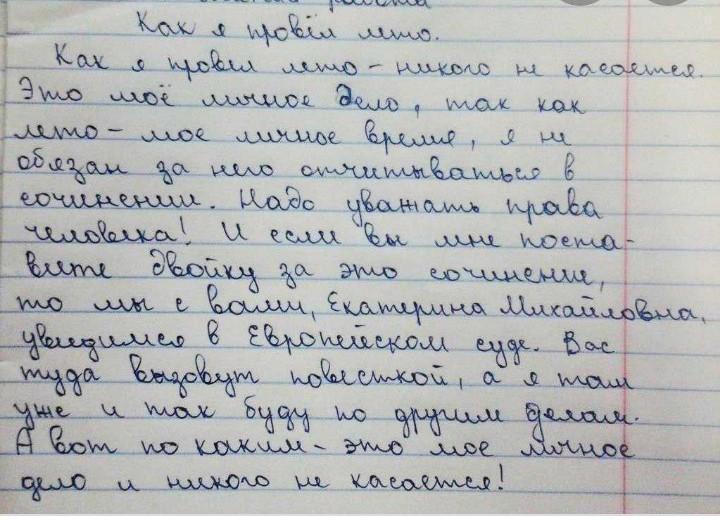 работа
Как я провёл лето.
Как я провел лето – никого не касается.
Это моё личное дело, так как
лето – мое личное время, я не
обязан за него отчитываться в
сочинении. Надо уважать права
человека! И если вы мне поста-
вите двойку за это сочинение,
то мы с вами, Екатерина Михайловна,
увидимся в Европейском суде. Вас
туда вызовут повесткой, а я там
уже и так буду по другим делам.
А вот по каким – это мое личное
дело и никого не касается!